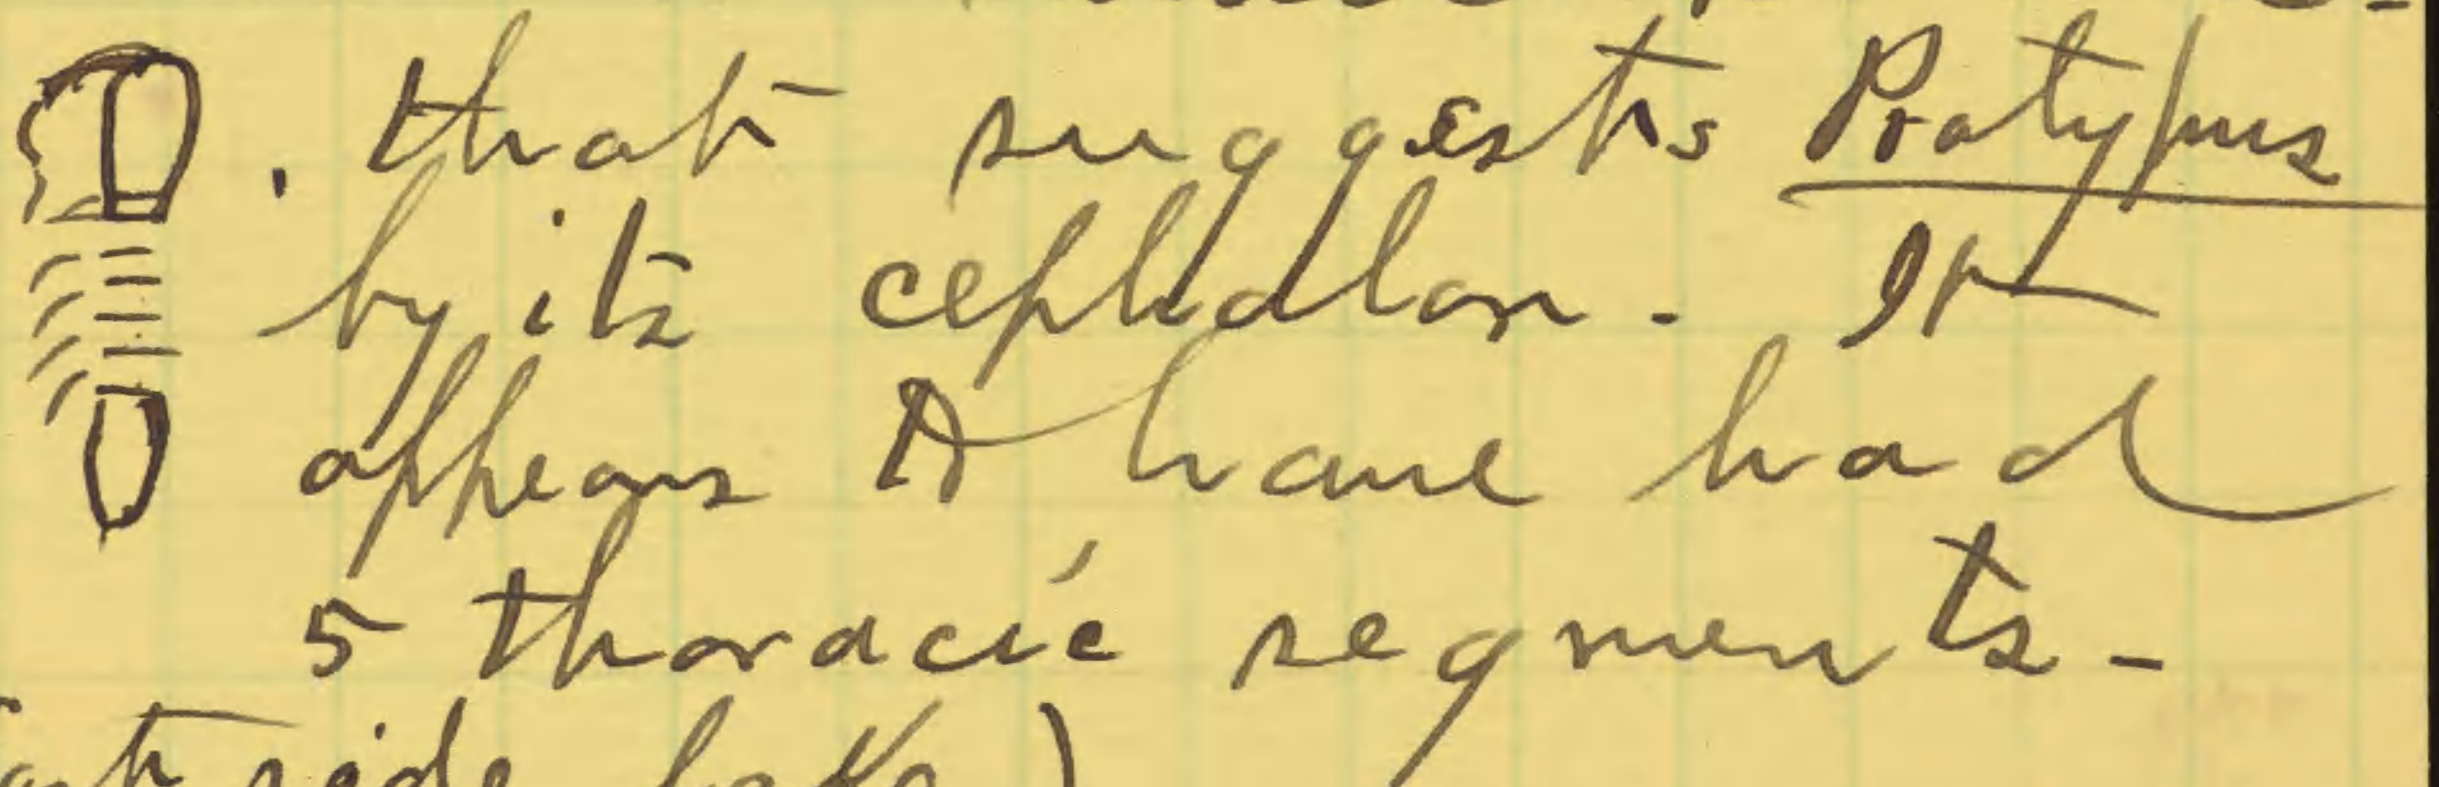 . that suggests Protypus
by its cephalon. It
appears to have had
5 thoracic segments -
side lake)